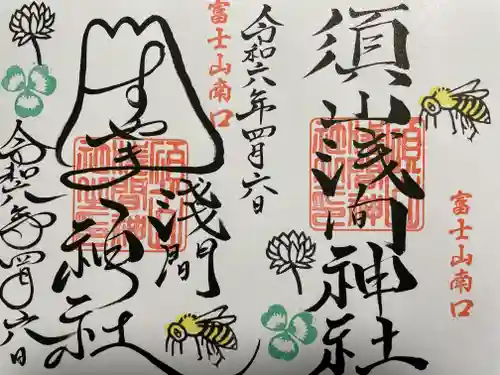 富士山南口
須山浅間神社
令和六年四月六日
富士山南口
すやま
浅間
神社
令和六年四月六日